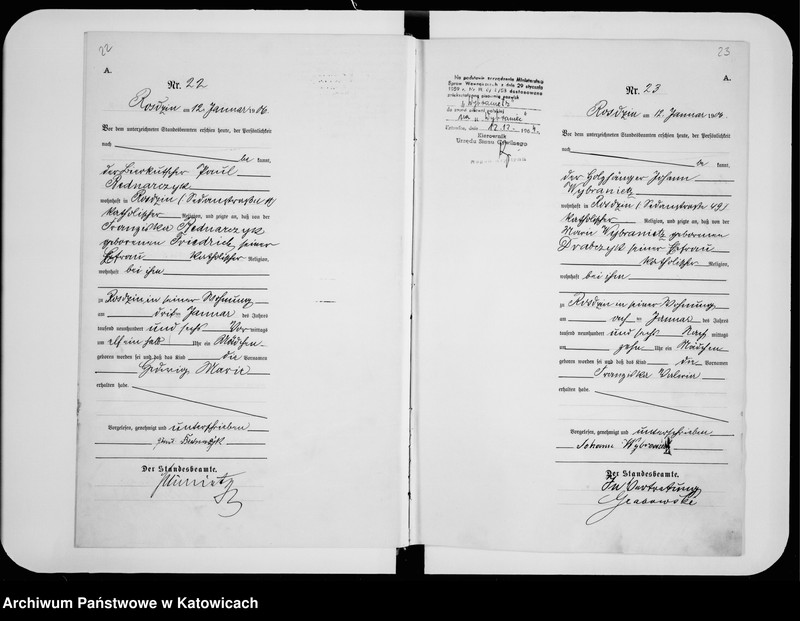 22
A.
Nr. 22
Rosdzin am 12. Januar 1906.
Vor dem unterzeichneten Standesbeamten erschien heute, der Persönlichkeit
nach be kannt,
der Paul
Bednarczyk
wohnhaft in Rosdzin / Sedanstraße
katholischer Religion, und zeigte an, daß von der
Franziska Bednarczyk
geborenen Friedrich, seiner
Ehefrau katholischer Religion,
wohnhaft bei ihm
zu Rosdzin in seiner Wohnung
am dritten Januar des Jahres
tausend neunhundert und sechs Vor mittags
um elf ein halb Uhr ein Mädchen
geboren worden sei und daß das Kind die Vornamen
Hedwig Marie
erhalten habe.
Vorgelesen, genehmigt und unterschrieben
Paul Bednarczyk
Der Standesbeamte.
23
A.
Nr. 23
Na podstawie zarządzenia Ministerstwa
Spraw Wewnętrznych z dnia 29 stycznia
dostosowano
pisownię
Wybranietz
na Wybraniec
Katowice, 196
Kierownik
Urzędu Stanu Cywilnego
Rosdzin am 12. Januar 1906.
Vor dem unterzeichneten Standesbeamten erschien heute, der Persönlichkeit
nach be kannt,
der Holzhänger Johann
Wybranietz
wohnhaft in Rosdzin / Sedanstraße 49/
katholischer Religion, und zeigte an, daß von der
Marie Wybranietz geborenen
Drabczyk seiner Ehefrau
katholischer Religion,
wohnhaft bei ihm
zu Rosdzin in seiner Wohnung
am ten Januar des Jahres
tausend neunhundert und sechs Nach mittags
um zehn Uhr ein Mädchen
geboren worden sei und daß das Kind die Vornamen
Franziska Valeria
erhalten habe.
Vorgelesen, genehmigt und unterschrieben
Johann Wybranietz
Der Standesbeamte.
In Vertretung
Grabowski
Archiwum Państwowe w Katowicach